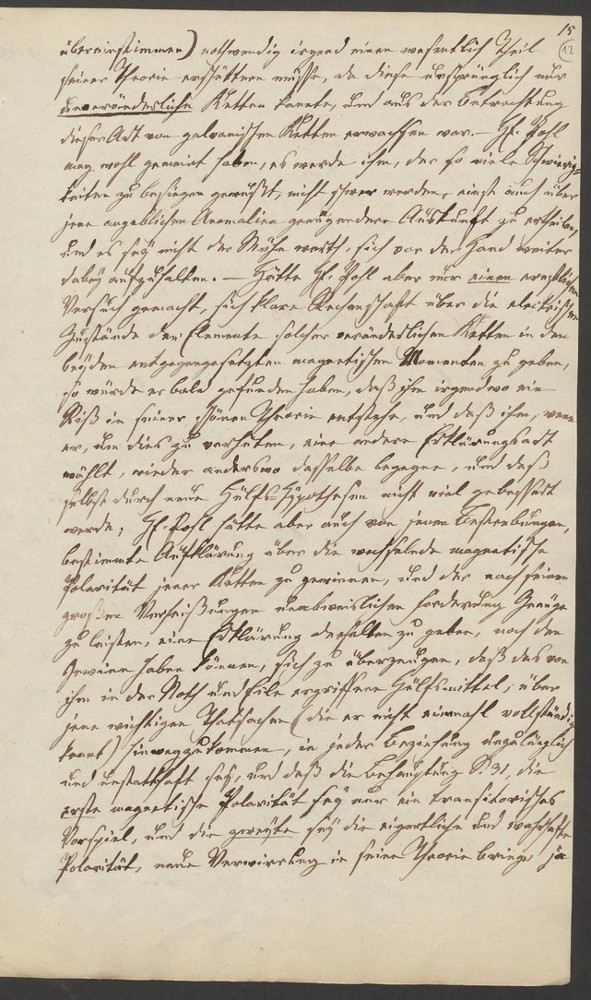 15
12
übereinstimmen) nothwendig irgend einen wesentlich Theil
seiner Theorie erschüttern müsse, da diese ursprünglich nur
unveränderliche Ketten kannte, und aus der Betrachtung
dieser Art von galvanischen Ketten erwachsen war. — Hf. Pohl
mag wohl gemeint haben, es werde ihm, der so viele Schwierig-
keiten zu besiegen gewußt, nicht schwer werden, einst auch über
jene angeblichen Anomalien genügendere Auskunft zu ertheilen,
und es sey nicht der Mühe werth, sich vor der Hand weiter
dabey aufzuhalten. — Hätte Hf. Pohl aber nur einen ernstlichen
Versuch gemacht, sich klare Rechenschaft über die electrischen
Zustände der Elemente solcher veränderlichen Ketten in den
beyden entgegengesetzten magnetischen Momenten zu geben,
so würde er bald gefunden haben, daß ihm irgendwo ein
Riß in seiner schönen Theorie entstehe, und daß ihm, wenn
er, um dies zu verhüten, eine andere Erklärungsart
wählt, wieder anderswo dasselbe begegne, und daß
selbst durch neue Hülfs-Hypothesen nicht viel gebessert
werde; Hf. Pohl hätte aber auch von jenen Bestrebungen,
bestimmte Aufklärung über die wechselnde magnetische
Polarität jener Ketten zu gewinnen, und der nach seinen
großen Verheißungen unabweislichen Forderung Genüge
zu leisten, eine Erklärung derselben zu geben, noch den
Gewinn haben können, sich zu überzeugen, daß das von
ihm in der Noth und Eile ergriffene Hülfsmittel, über
jene wichtigen Thatsachen (die er nicht einmahl vollständig
kannt) hinwegzukommen, in jeder Beziehung unzulänglich
und unstatthaft sey, und daß die Behauptung S. 31, die
erste magnetische Polarität sey nur ein transitorisches
Vorspiel, und die zweyte sey die eigentliche und wahrhafte
Polarität, neue Verwirrung in seine Theorie bringe, ja